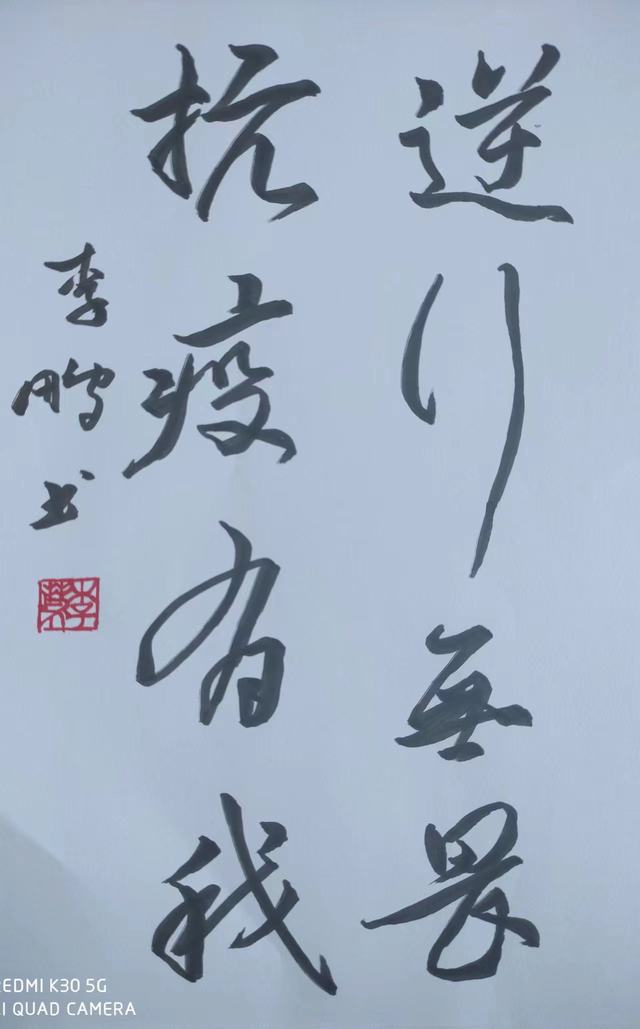 逆行無畏
抗疫有我
李鹏书
REDMI K30 5G
AI QUAD CAMERA